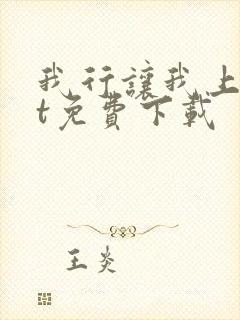 我行讓我上
t免費下載
王炎